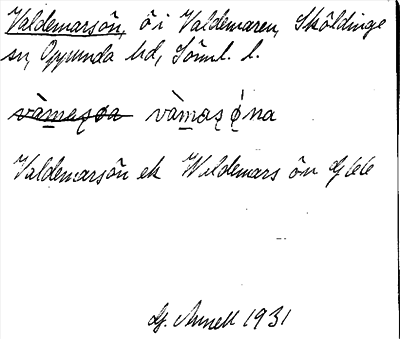 Valdemarsön, ö i Valdemaren, Sköldinge
sn, Oppunda hd, Söml. l.
vàmaʂøa vàmaʂ ǿna
Valdemarsön ek Wildemars ön
G. Annell 1931